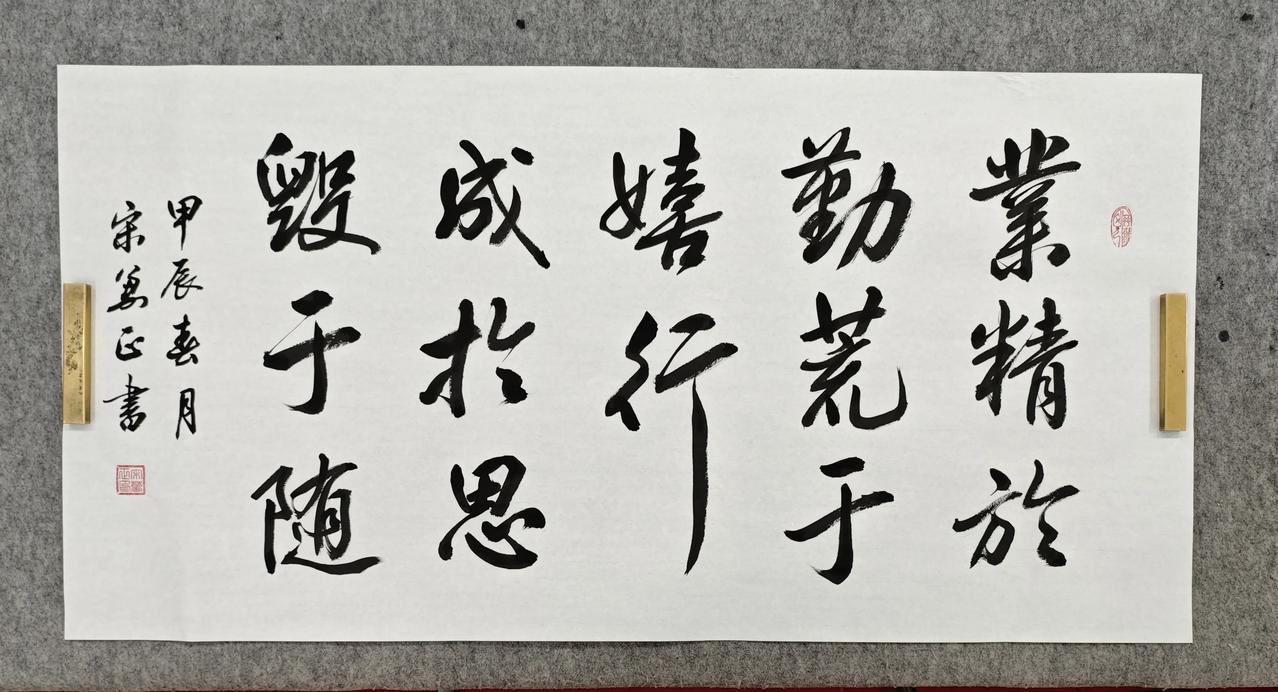 業精於
勤荒于
嬉行
成於思
毀于随
甲辰春月
宋為正書